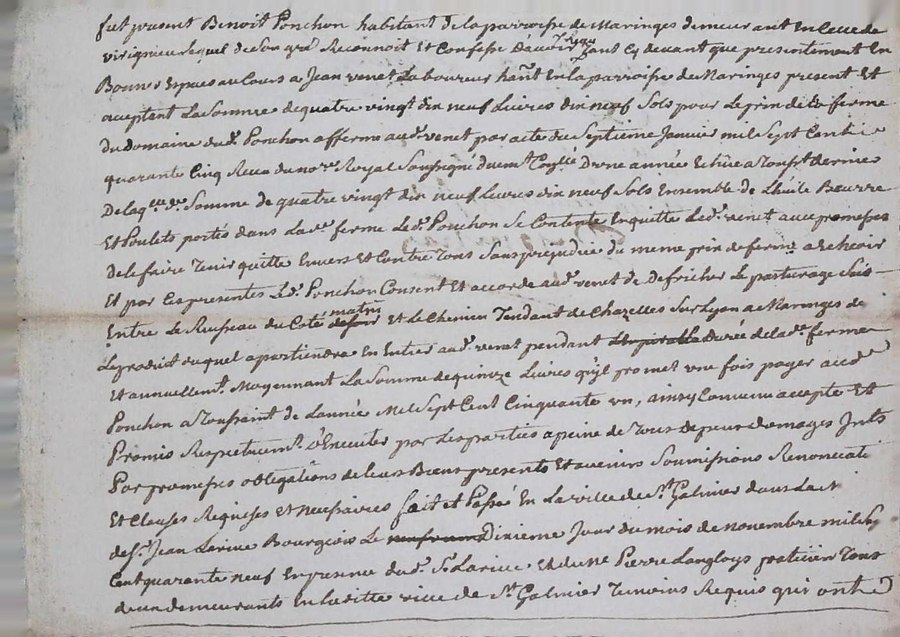 fut present Benoit Ponchon habitant de la parroisse de Maringes demeurant En celle de
virignieu lequel de Son gré Reconnoit Et Confesse D'avoir Reçu tant Cy devant que presentement En
Bonnes Especes au Cours de Jean venet Laboureur hant En la parroisse de Maringes present Et
acceptant La Somme de quatre vingt dix neuf Livres dix neuf Sols pour Le prix de la ferme
du Domaine dud. Ponchon affermé aud. venet par acte du Septieme Janvier mil Sept Cent
quarante Cinq Receu du nore Royal Soussigné Dune année Echue a Tousst dernier
De laqlle de Somme de quatre vingt dix neuf Livres dix neuf Sols Ensemble de L'huile Beurre
Et Poulets portés dans Lade ferme Led. Ponchon Se Contente En quitte Led. venet avec promesses
de le faire Tenir quitte Envers Et Contre Tous Sans prejudice du meme prix de ferme a Echeoir
Et par Ces presentes Led. Ponchon Consent Et accorde aud. venet de Defricher Le pasturage Sis
Entre Le Ruisseau du Coté matin Et Le Chemin Tendant de Chazelles Sur Lyon a Maringes de
Le produit duquel apartiendra En Entier aud. venet pendant La Durée de lade ferme
Et annuellemt. Moyennant La Somme de quinze Livres qu'il promet une fois payer aud.
Ponchon a Toussaint de L'année Mil Sept Cent Cinquante un, ainsy Convenu accepté Et
Promis Respectivemt. D'Executer par Les parties a peine de Tous depens Domages Jnts
Par promesses obligations de leurs Biens presents Et avenirs Soumissions Renonciati
Et Clauses Requises Et necessaires fait et Passé En La ville de St Galmier dans La
de Sr. Jean Larive Bourgeois Le Dixieme Jour du mois de novembre mil Sept
Cent quarante neuf En presence dud. Sr Larive Et de Me Pierre Langloys praticien Tous
deux demeurants En laditte ville de St Galmier Temoins Requis qui ont